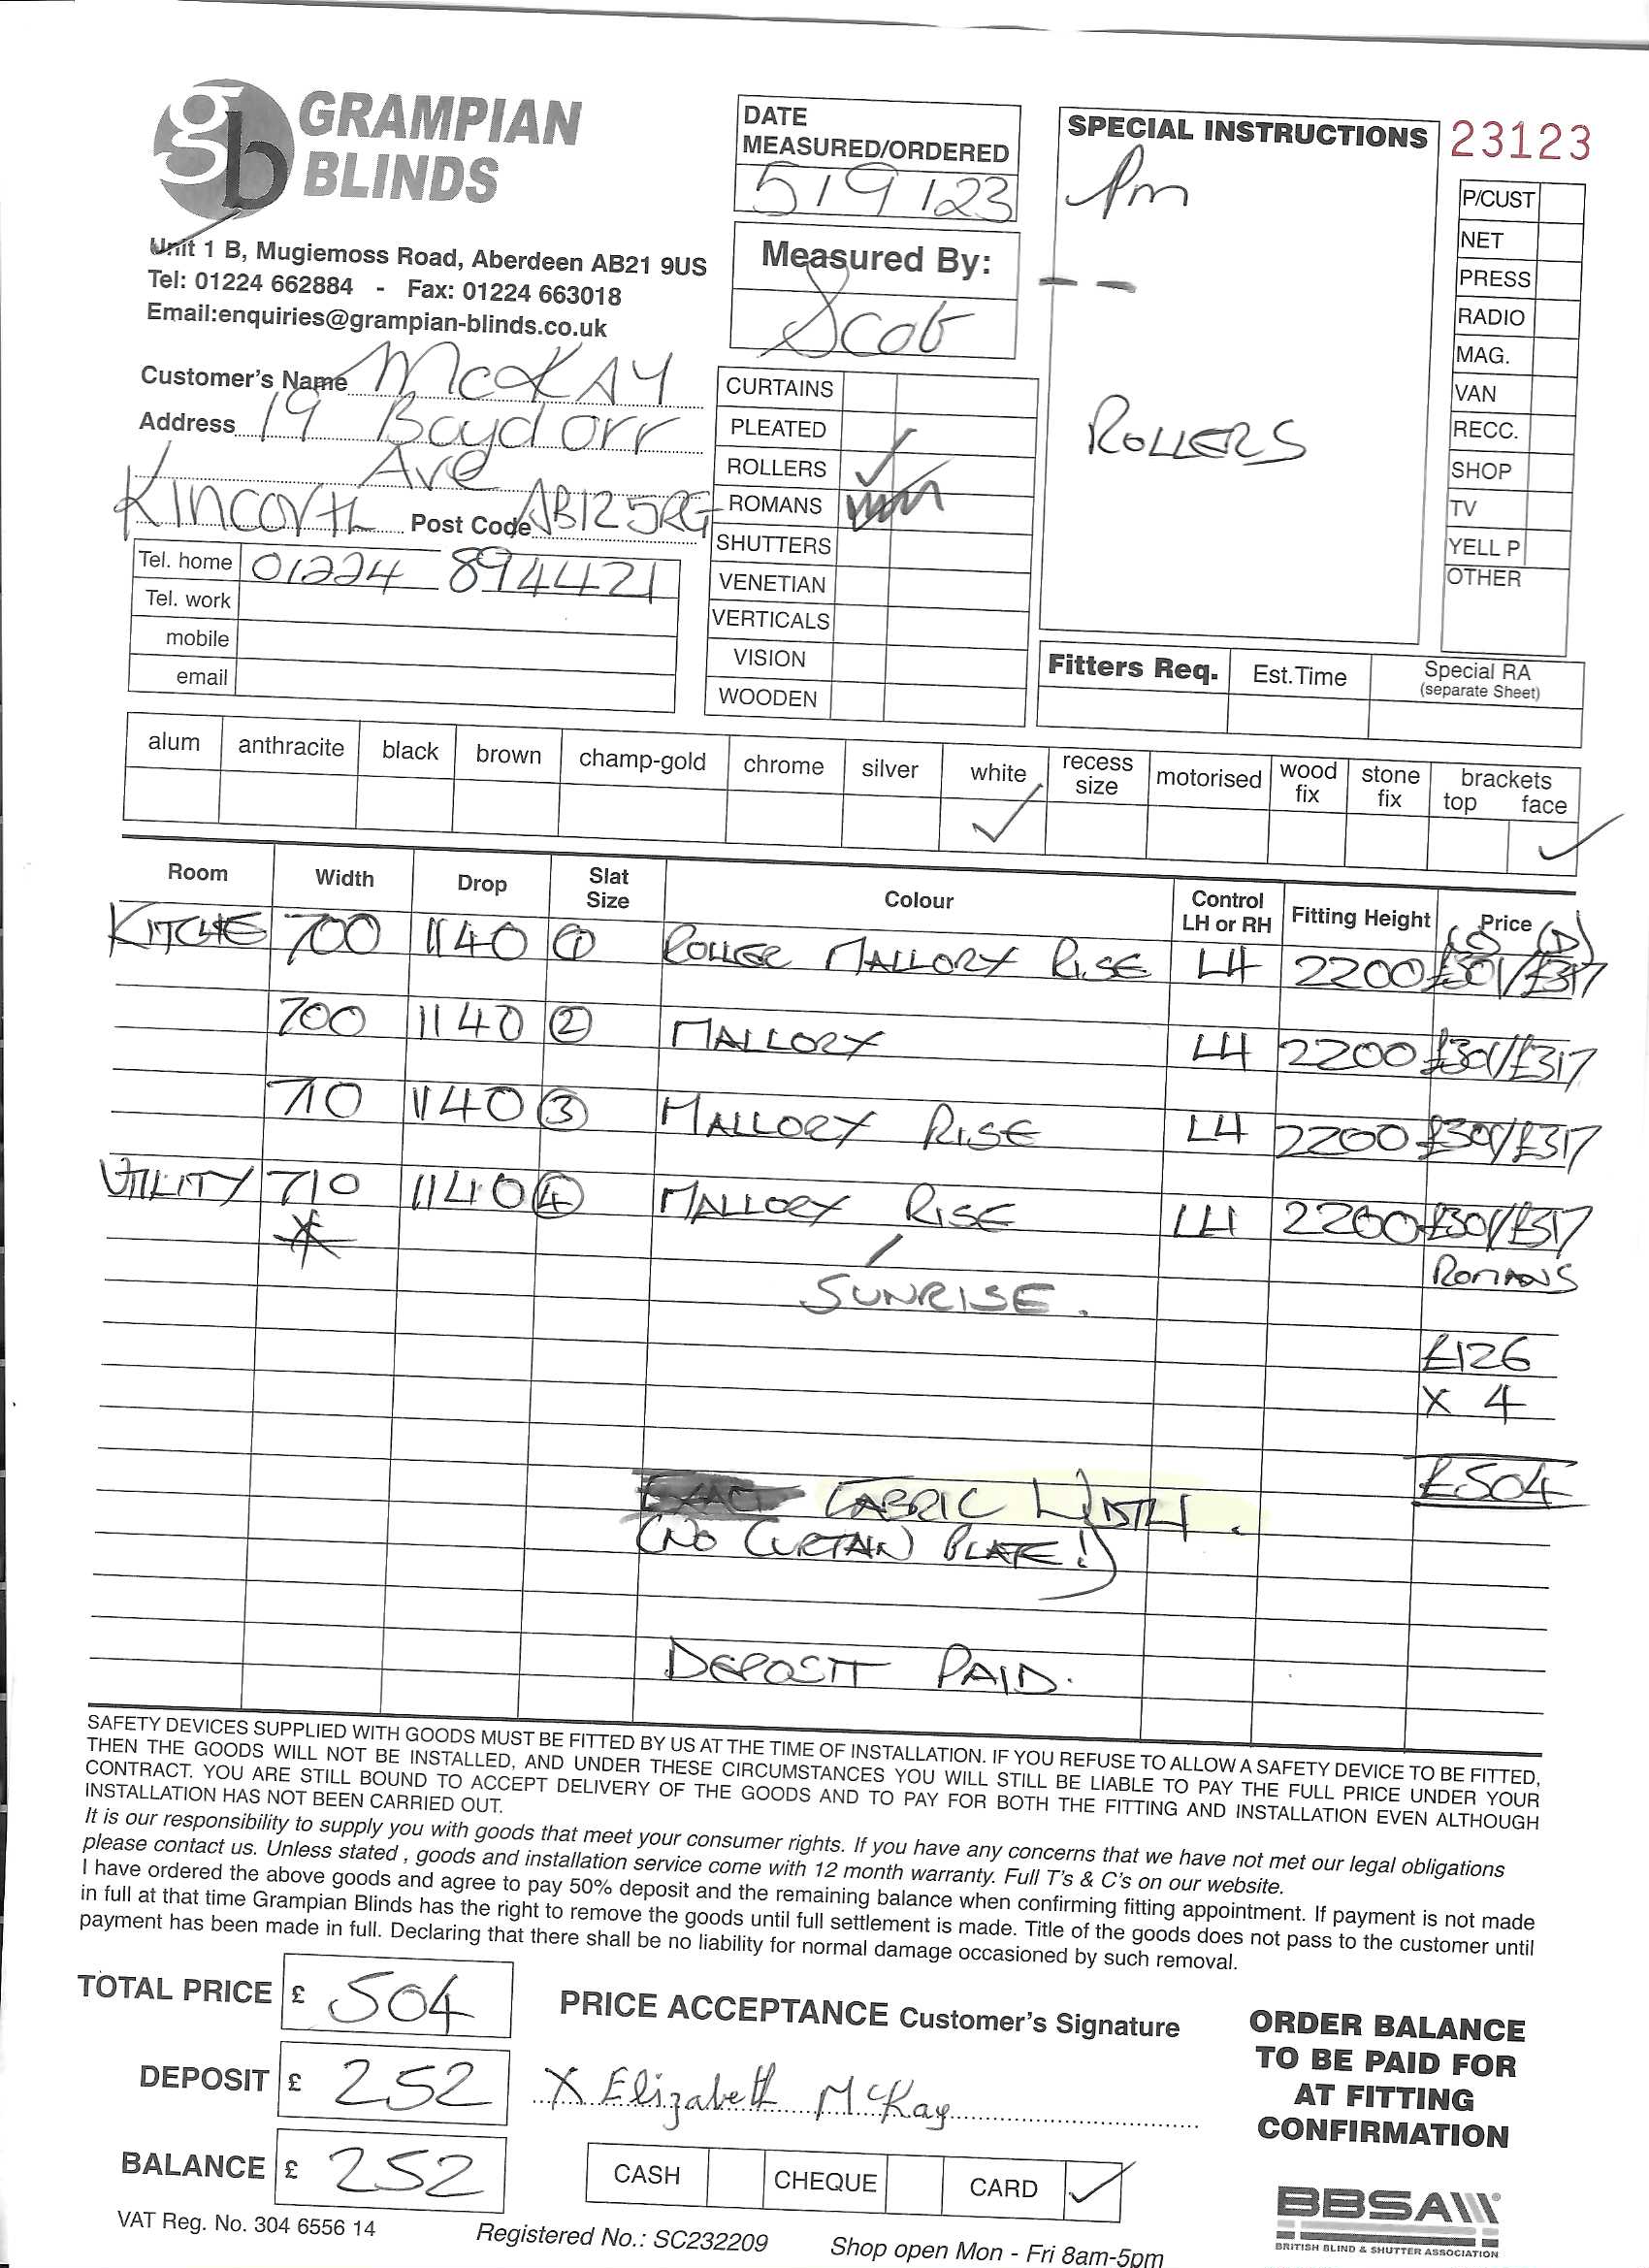 gb GRAMPIAN
BLINDS
Unit 1 B, Mugiemoss Road, Aberdeen AB21 9US
Tel: 01224 662884 - Fax: 01224 663018
Email:enquiries@grampian-blinds.co.uk
DATE
MEASURED/ORDERED
5/9/23
Measured By:
Scot
SPECIAL INSTRUCTIONS
Pm
ROLLERS
23123
P/CUST
NET
PRESS
RADIO
MAG.
VAN
RECC.
SHOP
TV
YELL P
OTHER
Customer's Name McKAY
Address 19 Boyd Orr
Ave
Kincorth Post Code AB12 5RG
Tel. home 01224 894421
Tel. work
mobile
email
CURTAINS
PLEATED
ROLLERS ✓
ROMANS
SHUTTERS
VENETIAN
VERTICALS
VISION
WOODEN
Fitters Req. Est.Time Special RA
(separate Sheet)
alum anthracite black brown champ-gold chrome silver white recess size motorised wood fix stone fix brackets top face
✓ ✓
Room Width Drop Slat Size Colour Control LH or RH Fitting Height Price
(C) (D)
KITCHE 700 1140 1 ROLLER MALLORY RISE LH 2200 £301/£317
700 1140 2 MALLORY LH 2200 £301/£317
710 1140 3 MALLORY RISE LH 2200 £301/£317
UTILITY 710 1140 4 MALLORY RISE LH 2200 £301/£317
* / ROMANS
SUNRISE.
£126
X 4
£504
FABRIC WIDTH.
(NO CURTAIN PLATE!)
DEPOSIT PAID.
SAFETY DEVICES SUPPLIED WITH GOODS MUST BE FITTED BY US AT THE TIME OF INSTALLATION. IF YOU REFUSE TO ALLOW A SAFETY DEVICE TO BE FITTED,
THEN THE GOODS WILL NOT BE INSTALLED, AND UNDER THESE CIRCUMSTANCES YOU WILL STILL BE LIABLE TO PAY THE FULL PRICE UNDER YOUR
CONTRACT. YOU ARE STILL BOUND TO ACCEPT DELIVERY OF THE GOODS AND TO PAY FOR BOTH THE FITTING AND INSTALLATION EVEN ALTHOUGH
INSTALLATION HAS NOT BEEN CARRIED OUT.
It is our responsibility to supply you with goods that meet your consumer rights. If you have any concerns that we have not met our legal obligations
please contact us. Unless stated , goods and installation service come with 12 month warranty. Full T's & C's on our website.
I have ordered the above goods and agree to pay 50% deposit and the remaining balance when confirming fitting appointment. If payment is not made
in full at that time Grampian Blinds has the right to remove the goods until full settlement is made. Title of the goods does not pass to the customer until
payment has been made in full. Declaring that there shall be no liability for normal damage occasioned by such removal.
TOTAL PRICE £ 504
DEPOSIT £ 252
BALANCE £ 252
PRICE ACCEPTANCE Customer's Signature
X Elizabeth McKay
CASH CHEQUE CARD ✓
ORDER BALANCE
TO BE PAID FOR
AT FITTING
CONFIRMATION
BBSA
BRITISH BLIND & SHUTTER ASSOCIATION
VAT Reg. No. 304 6556 14 Registered No.: SC232209 Shop open Mon - Fri 8am-5pm